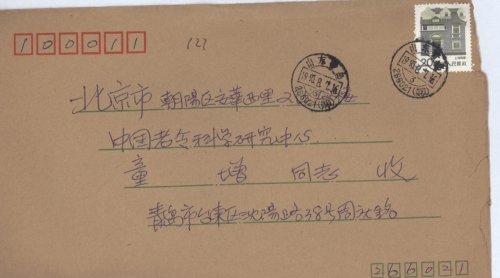 100011
(2)
山东 青岛
266021
20
中国人民邮政
北京市 朝阳区安华西里
中国老龄科学研究中心
童 增 同志 收
青岛市台东区沈阳路38号周
266021